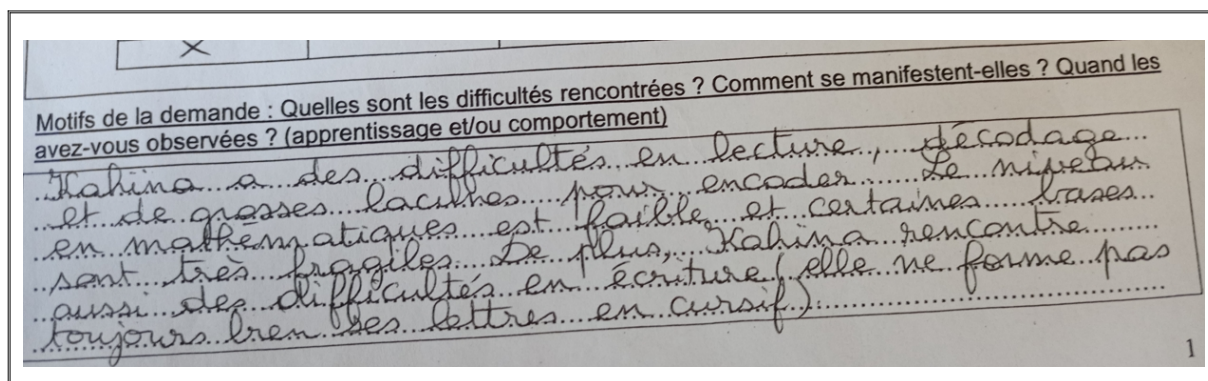 Motifs de la demande : Quelles sont les difficultés rencontrées ? Comment se manifestent-elles ? Quand les
avez-vous observées ? (apprentissage et/ou comportement)
Kahina a des difficultés en lecture, décodage
et de grosses lacunes pour encoder. Le niveau
en mathématiques est faible et certaines bases
sont très fragiles. De plus, Kahina rencontre
aussi des difficultés en écriture (elle ne forme pas
toujours bien ses lettres en cursif).
1